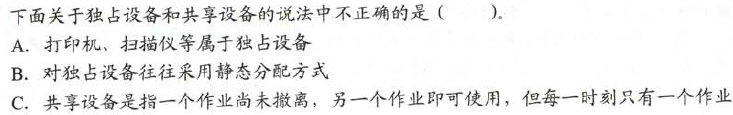 下面关于独占设备和共享设备的说法中不正确的是（　　）。
A. 打印机、扫描仪等属于独占设备
B. 对独占设备往往采用静态分配方式
C. 共享设备是指一个作业尚未撤离，另一个作业即可使用，但每一时刻只有一个作业